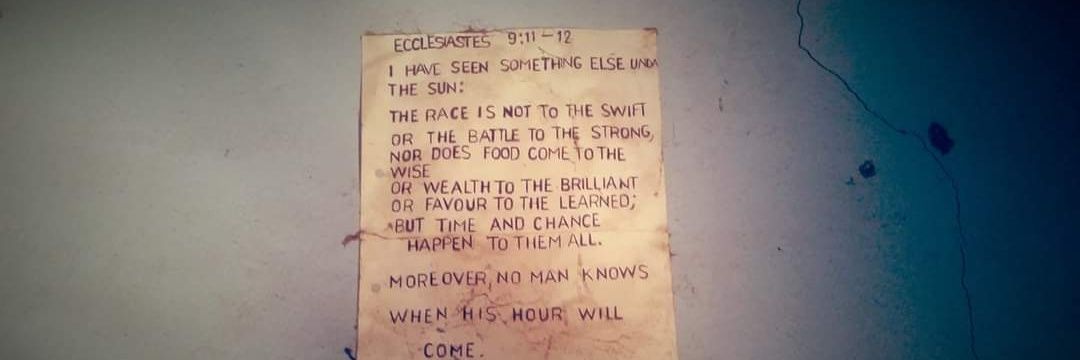 ECCLESIASTES 9:11-12
I HAVE SEEN SOMETHING ELSE UNDA
THE SUN:
THE RACE IS NOT TO THE SWIFT
OR THE BATTLE TO THE STRONG,
NOR DOES FOOD COME TO THE
WISE
OR WEALTH TO THE BRILLIANT
OR FAVOUR TO THE LEARNED;
BUT TIME AND CHANCE
HAPPEN TO THEM ALL.
MOREOVER, NO MAN KNOWS
WHEN HIS HOUR WILL
COME.